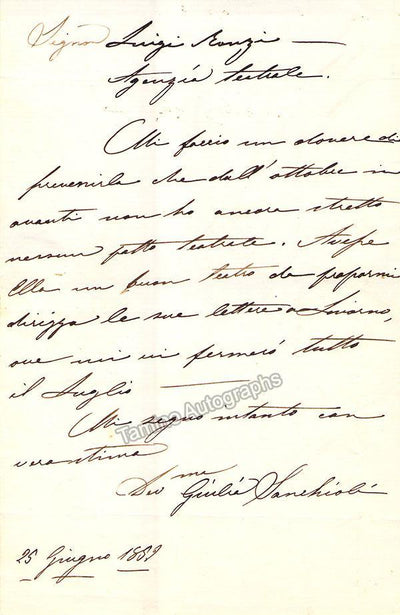 Signor Luigi Ronzi —
Agenzia teatrale.
Mi faccio un dovere di
prevenirla che dall'ottobre in
avanti non ho ancora stretto
nessun patto teatrale. Avesse
Ella un buon teatro da propormi
dirigga le sue lettere a Livorno,
ove mi vi fermerò tutto
il Luglio —
Tamino Autographs
Mi segno intanto con
vera stima
Devme Giulia Sanchioli
25 Giugno 1852